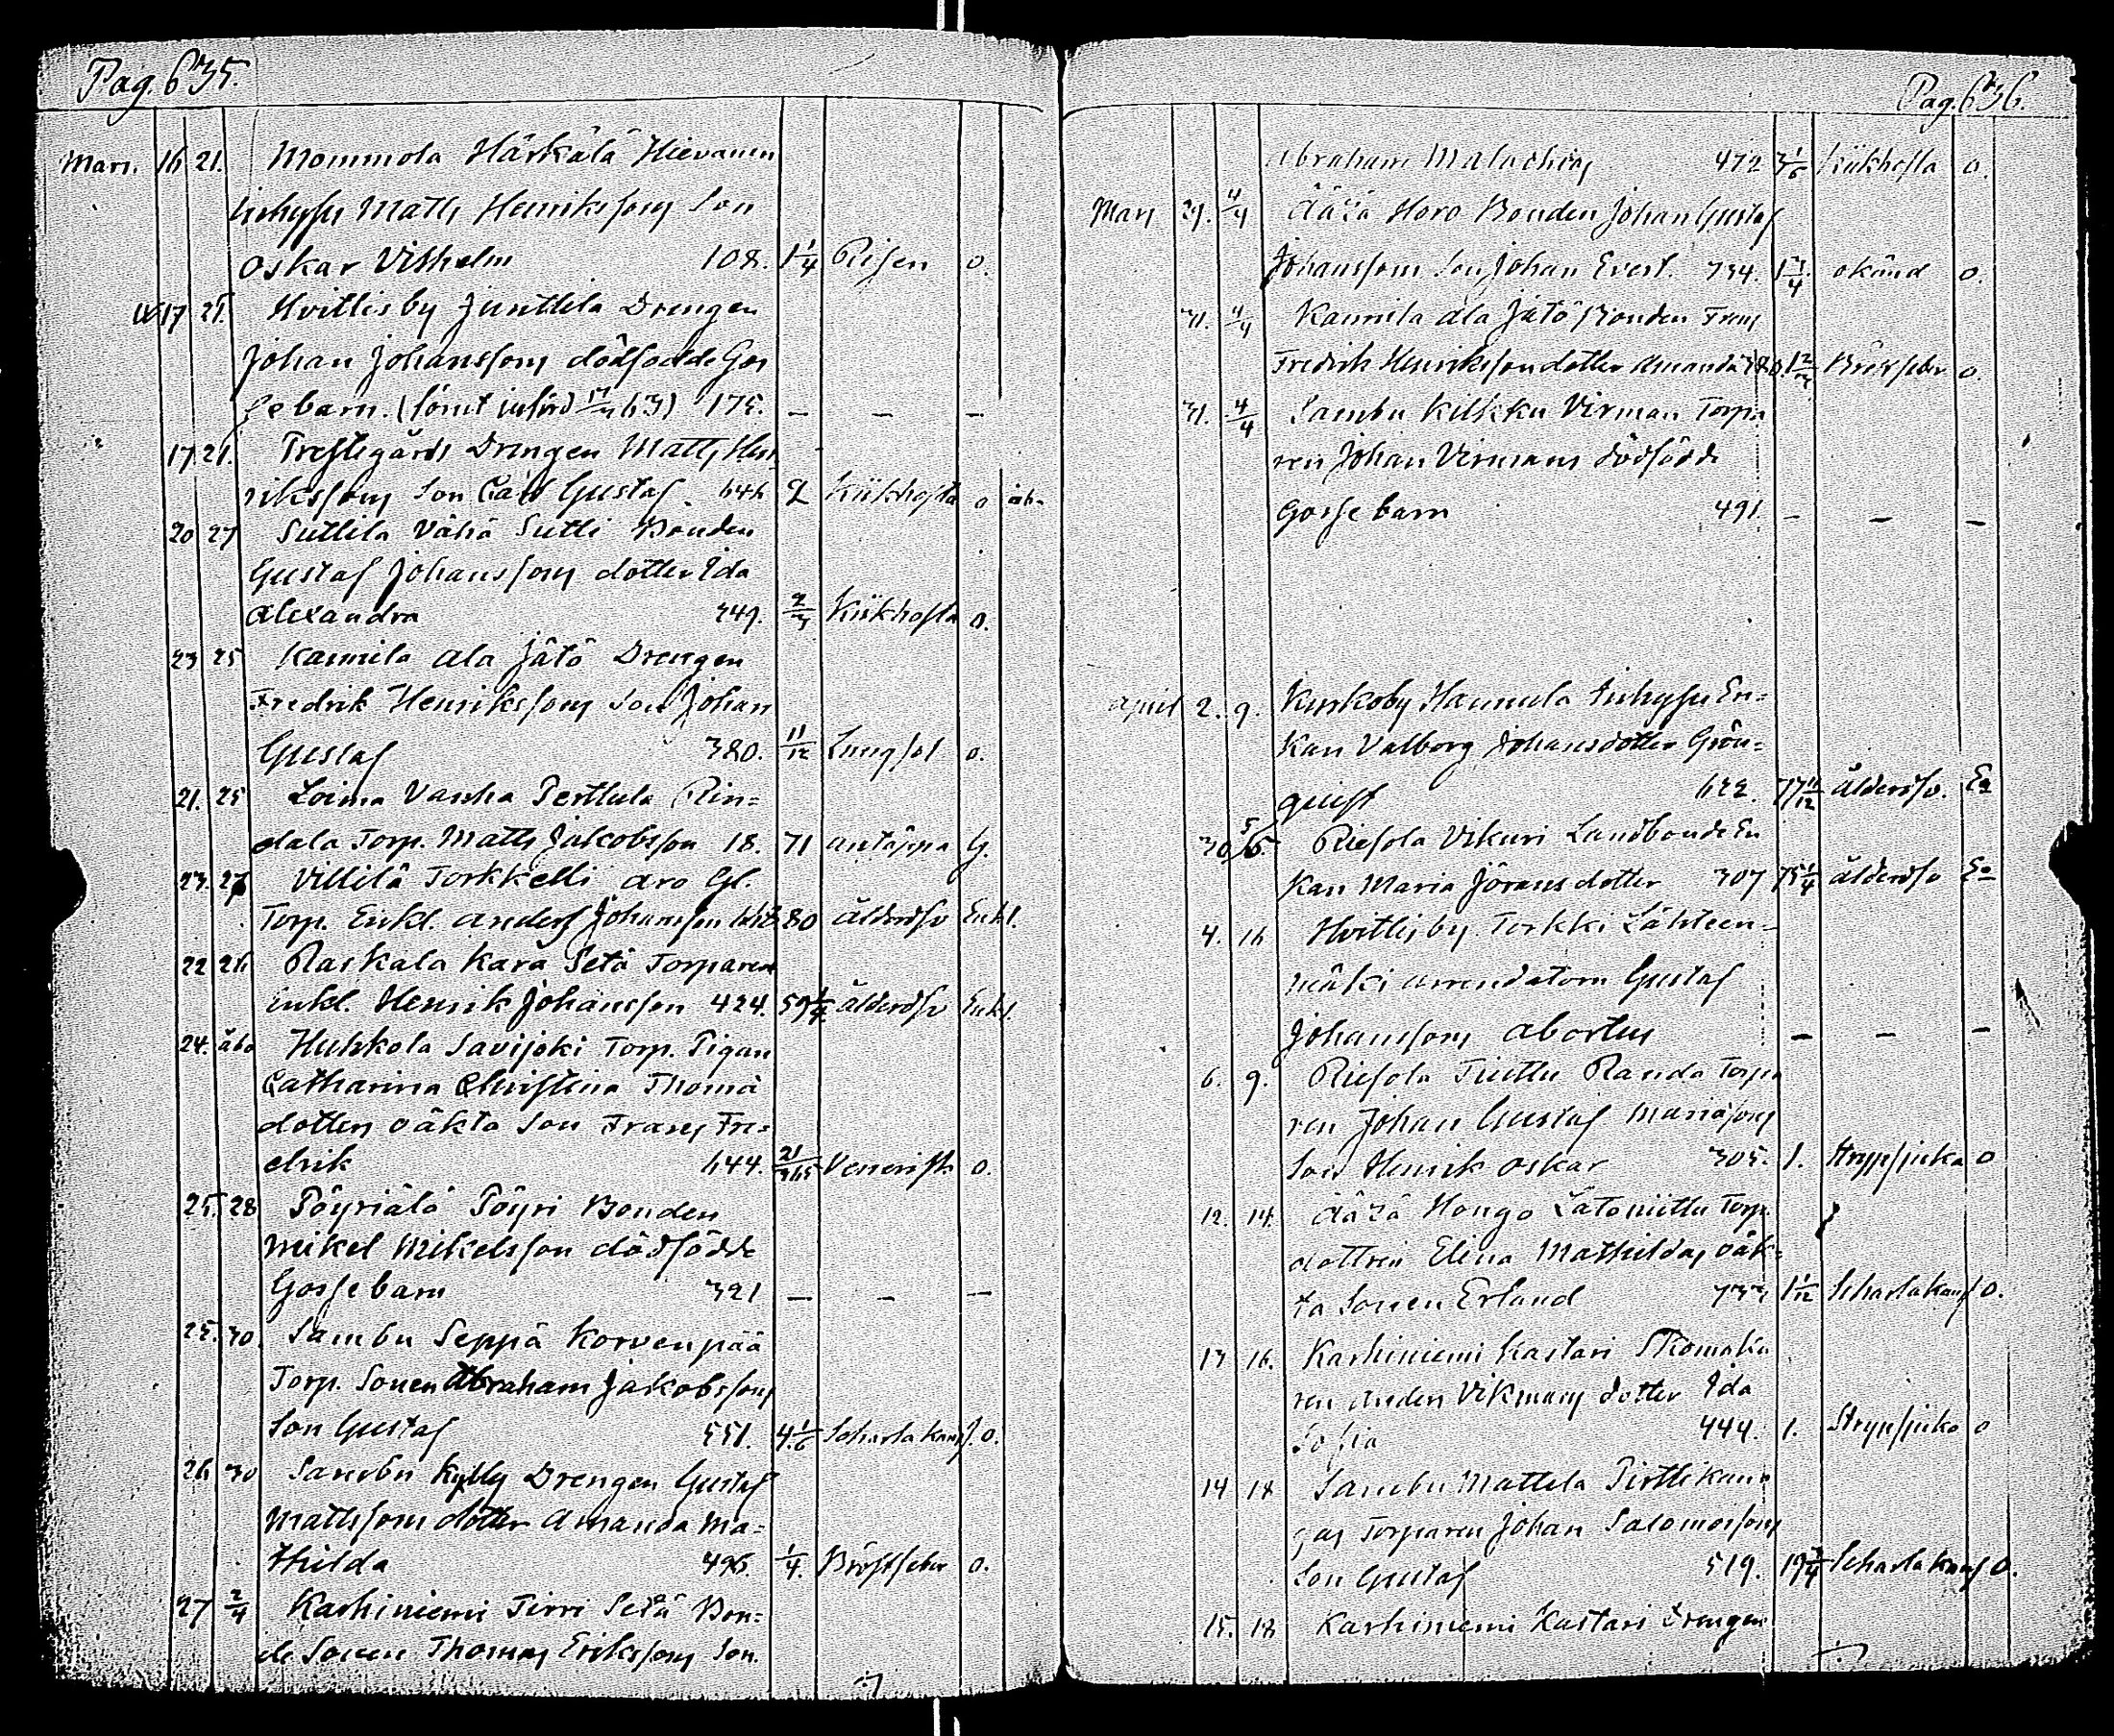 Pag. 635.
Mars. 16 21. Mommola Härkälä Hievanen
Inhyses Matts Henrikssons Son
Oskar Vilhelm 108. 1 1/4 Risen o.
17 21. Hvittisby Junttila Drengen
Johan Johanssons dödfödde Gos
se barn. 175. — — —
17 21. Prestegårds Drengen Matts Hen
rikssons Son Carl Gustaf 646 2 Kikhosta o
20 27 Suttila Vähä Sutti Bonden
Gustaf Johanssons dotter Ida
Alexandra 349. 2/3 Kikhosta o.
23 25 Kamila Ala Jätö Drengen
Fredrik Henrikssons Son Johan
Gustaf 380. 11/12 Lungsot o.
21. 25 Loima Vanha Perttula Rin=
dala Torp. Matts Jakobsson 18. 71 Antäppa G.
23. 27 Villilä Torkkelli Aro Gl.
Torp. Enkl. Anders Johansson 80 ålderdsv Enkl.
22 26 Raskala Kara Setä Torparen
Enkl. Henrik Johansson 424. 59 1/4 ålderdsv Enkl.
24. Åbo Huhkola Savijoki Torp. Pigan
Catharina Christina Thomä
dotters oäkta Son Frans Fre=
drik 644. 21/365 Venerisk o.
25. 28 Pöyriälä Pöyri Bonden
Mikel Mikelsson dödfödde
Gosse barn 321 — — —
25. 30. Sambu Seppä Korvenpää
Torp. Sonen Abraham Jakobssons
Son Gustaf 551. 4 1/6 Scharlakansf. o.
26 30 Sambu Kylly Drengen Gustaf
Mattssons dotter Amanda Ma=
thilda 496. 1/4. Bröstfeber o.
27 2/4 Karhiniemi Jirri Setä Bon=
de Sonen Thomas Erikssons Son.
Pag. 636.
Abraham Malachias 472 3 1/6 Kikhosta o.
Mars 29. 4/4 Äätä Horo Bonden Johan Gustaf
Johanssons Son Johan Evert. 734. okänd o.
31. 4/4 Kamila Ala Jätö Bonden Frans
Fredrik Henriksson dotter Amanda 380. Bröstfeber o.
31. 4/4 Sambu Kilkku Virman Torpa
ren Johan Virmans dödfödde
Gosse barn 491 — — —
April 2. 9. Kurkoby Hannula Inhyses En=
kan Valborg Johansdotter Grön=
quist 622. 77 11/12 ålderdsv. Ea
30 5/5. Riesola Vikuri Landbonde En
kan Maria Jöransdotter 307 75 1/4 ålderdsv Ea
4. 16 Hvittisby Torkki Lähteen=
mäki Arrendatorn Gustaf
Johanssons Abortus — — —
6. 9. Riesola Tiuttu Randa Torpa
ren Johan Gustaf Mariasons
Son Henrik Oskar 305. 1. Strypsjuka o
12. 14. Äätä Hongo Lätoniittu Torp.
dottren Elina Mathildas oäk=
ta Sonen Erland 733 1 1/12 Scharlakansf o.
13 16. Karhiniemi Kastari Skomaka
ren Anders Vikmans dotter Ida
Sofia 444. 1. Strypsjuka o
14 18 Sambu Mattila Pirttikan
gas Torparen Johan Salomossons
Son Gustaf 519. 19 3/4 Scharlakansf o.
15. 18 Karhiniemi Kastari Drengen